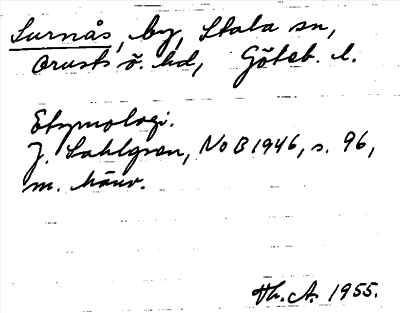 Surnås, by, Stala sn,
Orusts ö. hd, Göteb. l.
Etymologi.
J. Sahlgren, NoB 1946, s. 96,
m. hänv.
Th. A. 1955.